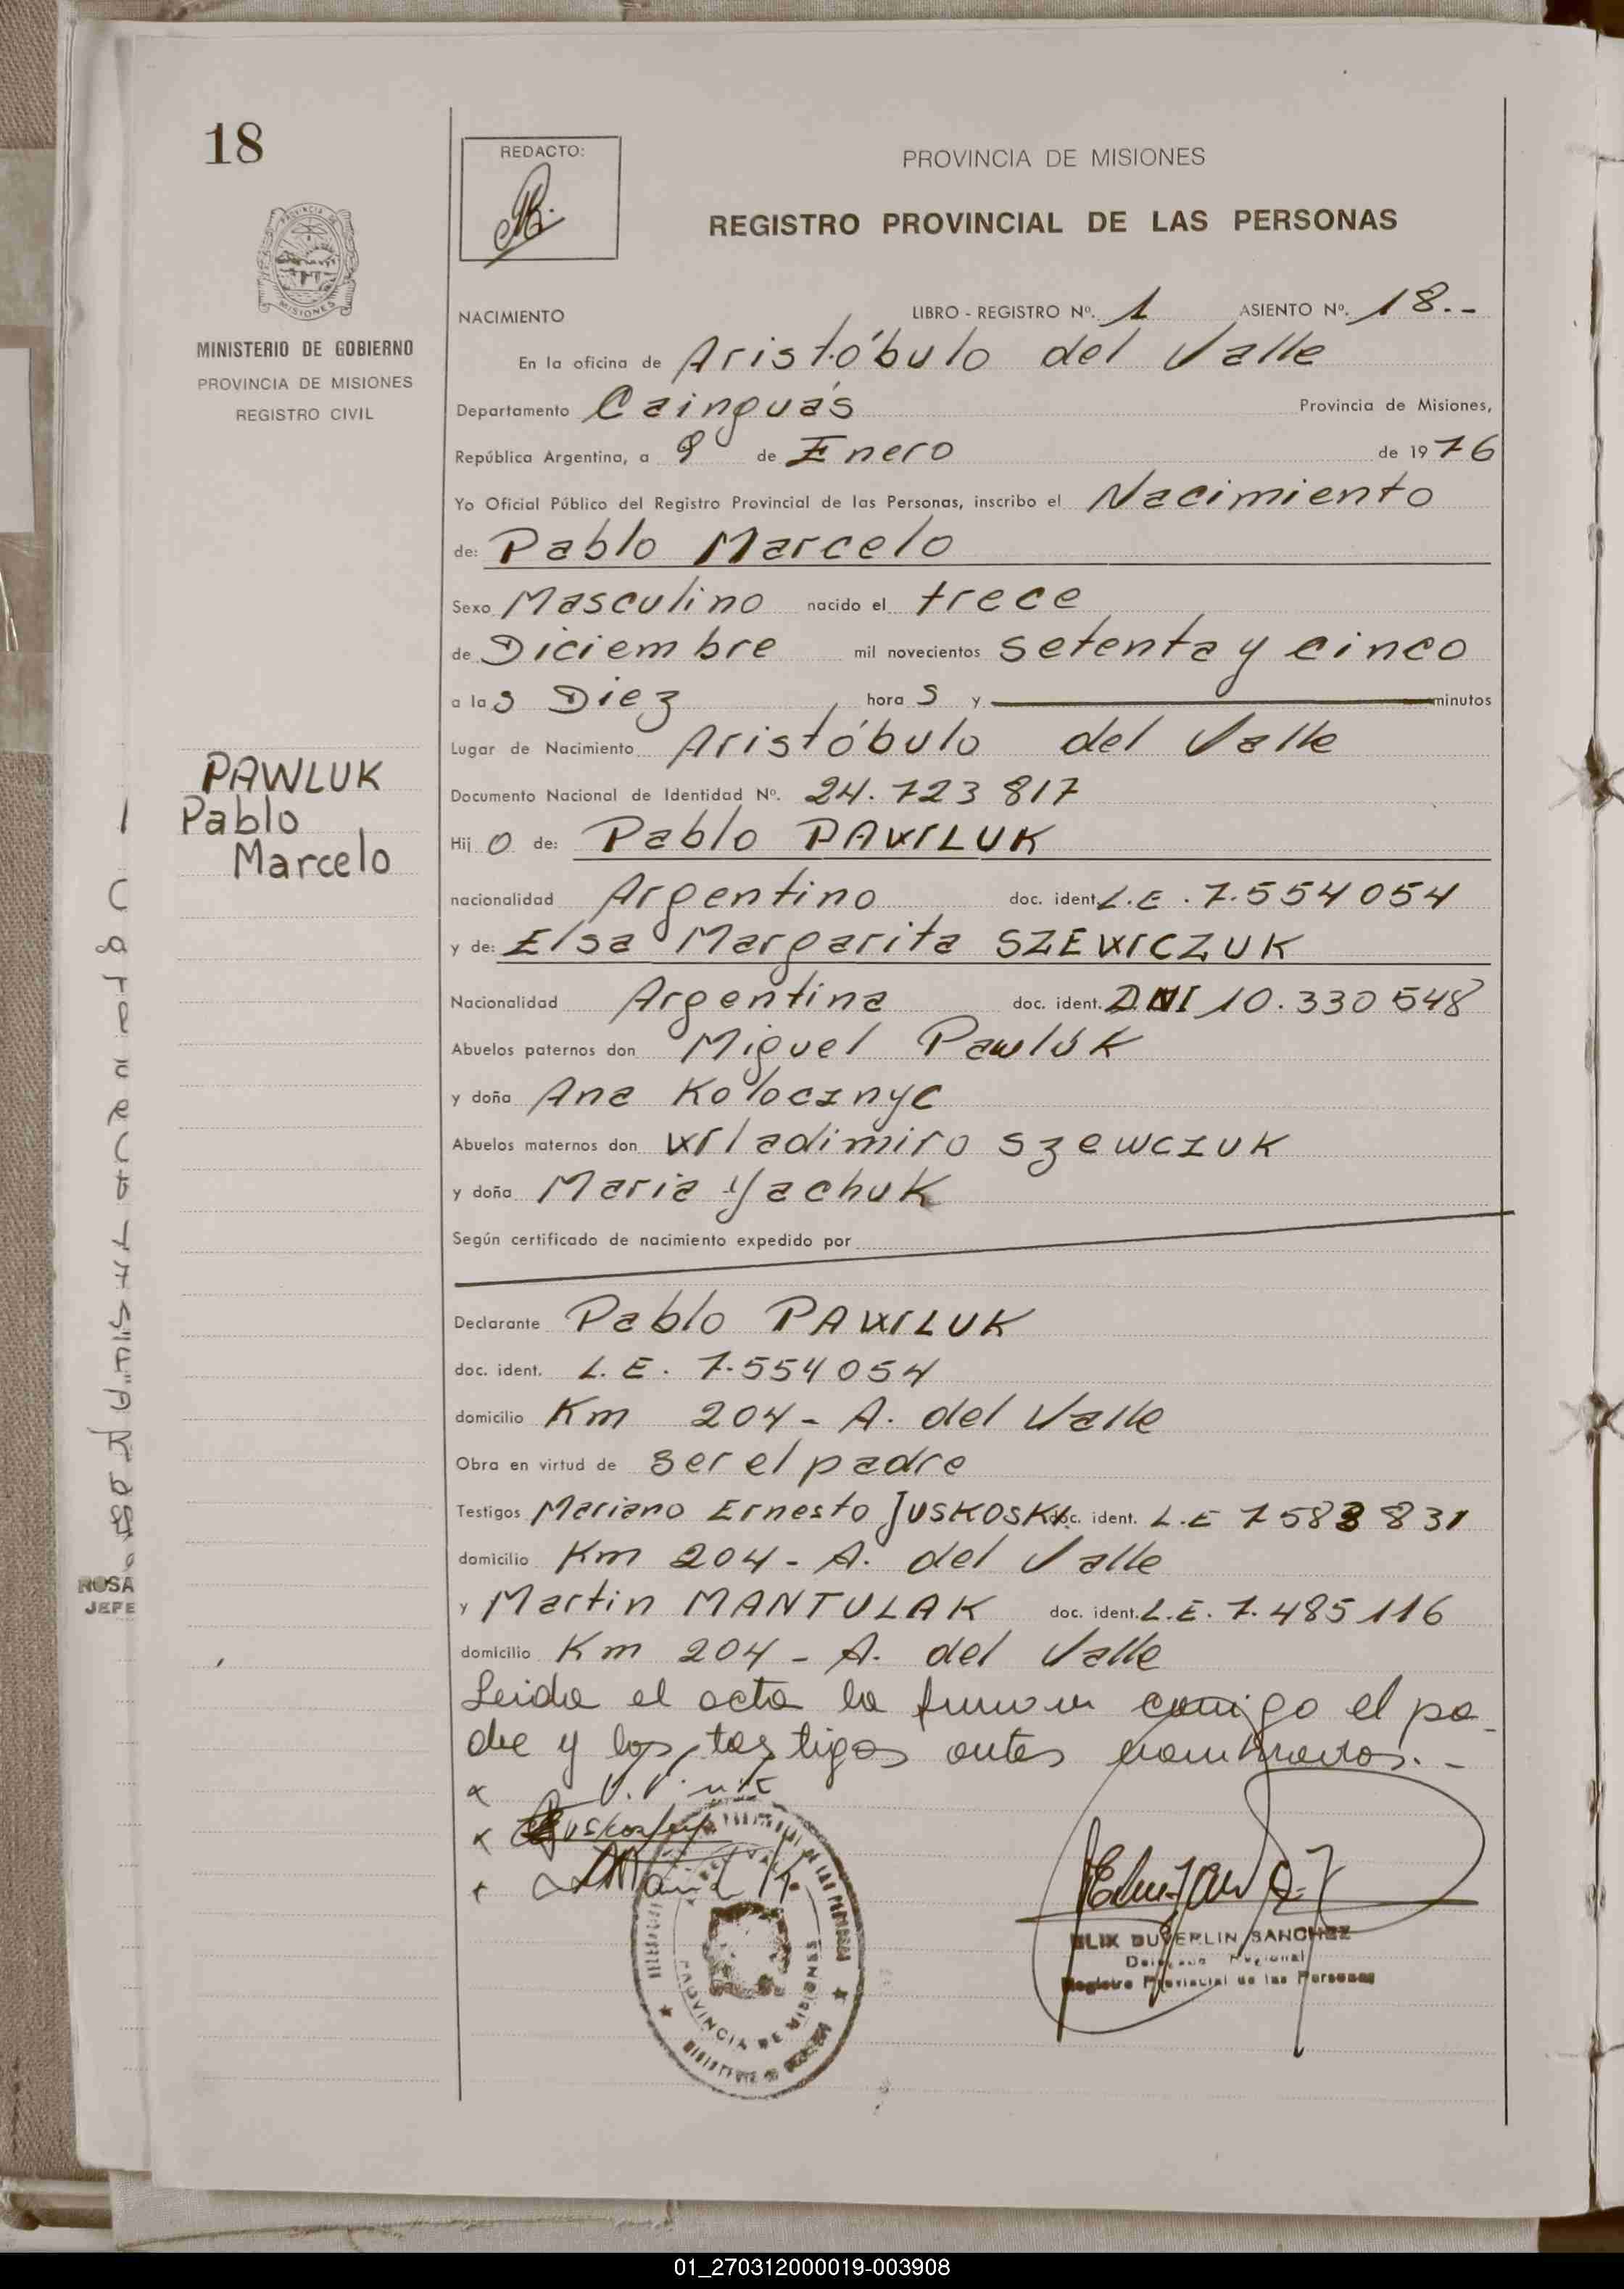 18
REDACTO:
PROVINCIA DE MISIONES
REGISTRO PROVINCIAL DE LAS PERSONAS
MINISTERIO DE GOBIERNO
PROVINCIA DE MISIONES
REGISTRO CIVIL
NACIMIENTO LIBRO - REGISTRO Nº. 1 ASIENTO Nº. 18.-
En la oficina de Aristóbulo del Valle
Departamento Cainguás Provincia de Misiones,
República Argentina, a 9 de Enero de 1976
Yo Oficial Público del Registro Provincial de las Personas, inscribo el Nacimiento
de: Pablo Marcelo
Sexo Masculino nacido el trece
de Diciembre mil novecientos setenta y cinco
a las Diez horas y minutos
Lugar de Nacimiento Aristóbulo del Valle
PAWLUK
Pablo
Marcelo
Documento Nacional de Identidad Nº. 24.723 817
Hijo de: Pablo PAWLUK
nacionalidad Argentino doc. ident. L.E. 7.554 054
y de: Elsa Margarita SZEWCZUK
Nacionalidad Argentina doc. ident. DNI 10.330 548
Abuelos paternos don Miguel Pawluk
y doña Ana Kolocznyc
Abuelos maternos don Wladimiro Szewczuk
y doña Maria Yachuk
Según certificado de nacimiento expedido por
Declarante Pablo PAWLUK
doc. ident. L.E. 7.554 054
domicilio Km 204 - A. del Valle
Obra en virtud de ser el padre
Testigos Mariano Ernesto JUSKOSKY. doc. ident. L.E 7 583 831
domicilio Km 204 - A. del Valle
y Martin MANTULAK doc. ident. L.E. 7.485 116
domicilio Km 204 - A. del Valle
Leida el acta la firman conmigo el pa-
dre y los testigos antes nombrados.-
SANCHEZ
Registro Provincial de las Personas
PROVINCIA DE MISIONES
ROSA
JEFE
01_270312000019-003908